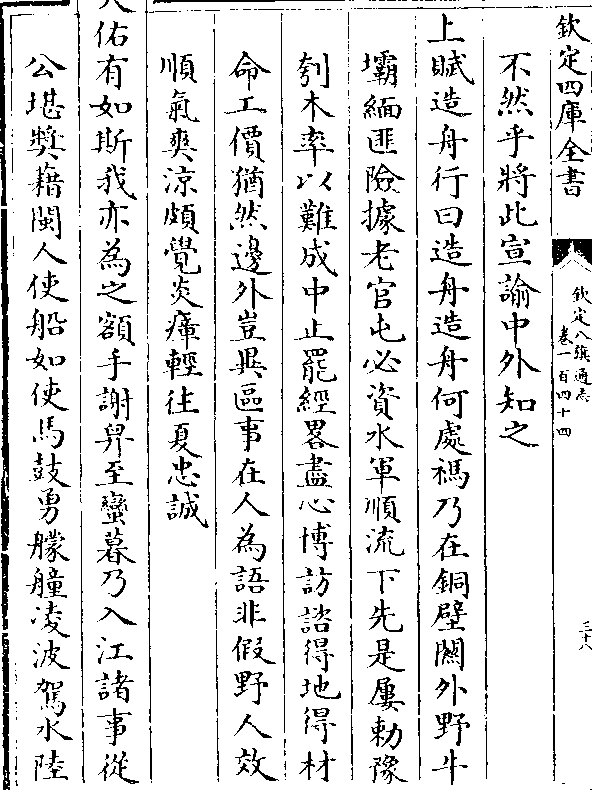 欽定四庫全書
欽定八旗通志
卷一百四十四
三十八
不然乎將此宣諭中外知之
上賦造舟行曰造舟造舟何處禡乃在銅壁關外野牛
壩緬匪險據老官屯必資水軍順流下先是屢勅豫
刳木率以難成中止罷經畧盡心博訪諮得地得材
命工價猶然邊外豈異區事在人為語非假野人效
順氣爽涼頗覺炎瘴輕往夏忠誠
天佑有如斯我亦為之額手謝舁至蠻暮乃入江諸事從
公堪獎藉閩人使船如使馬鼓勇艨艟凌波駕水陸